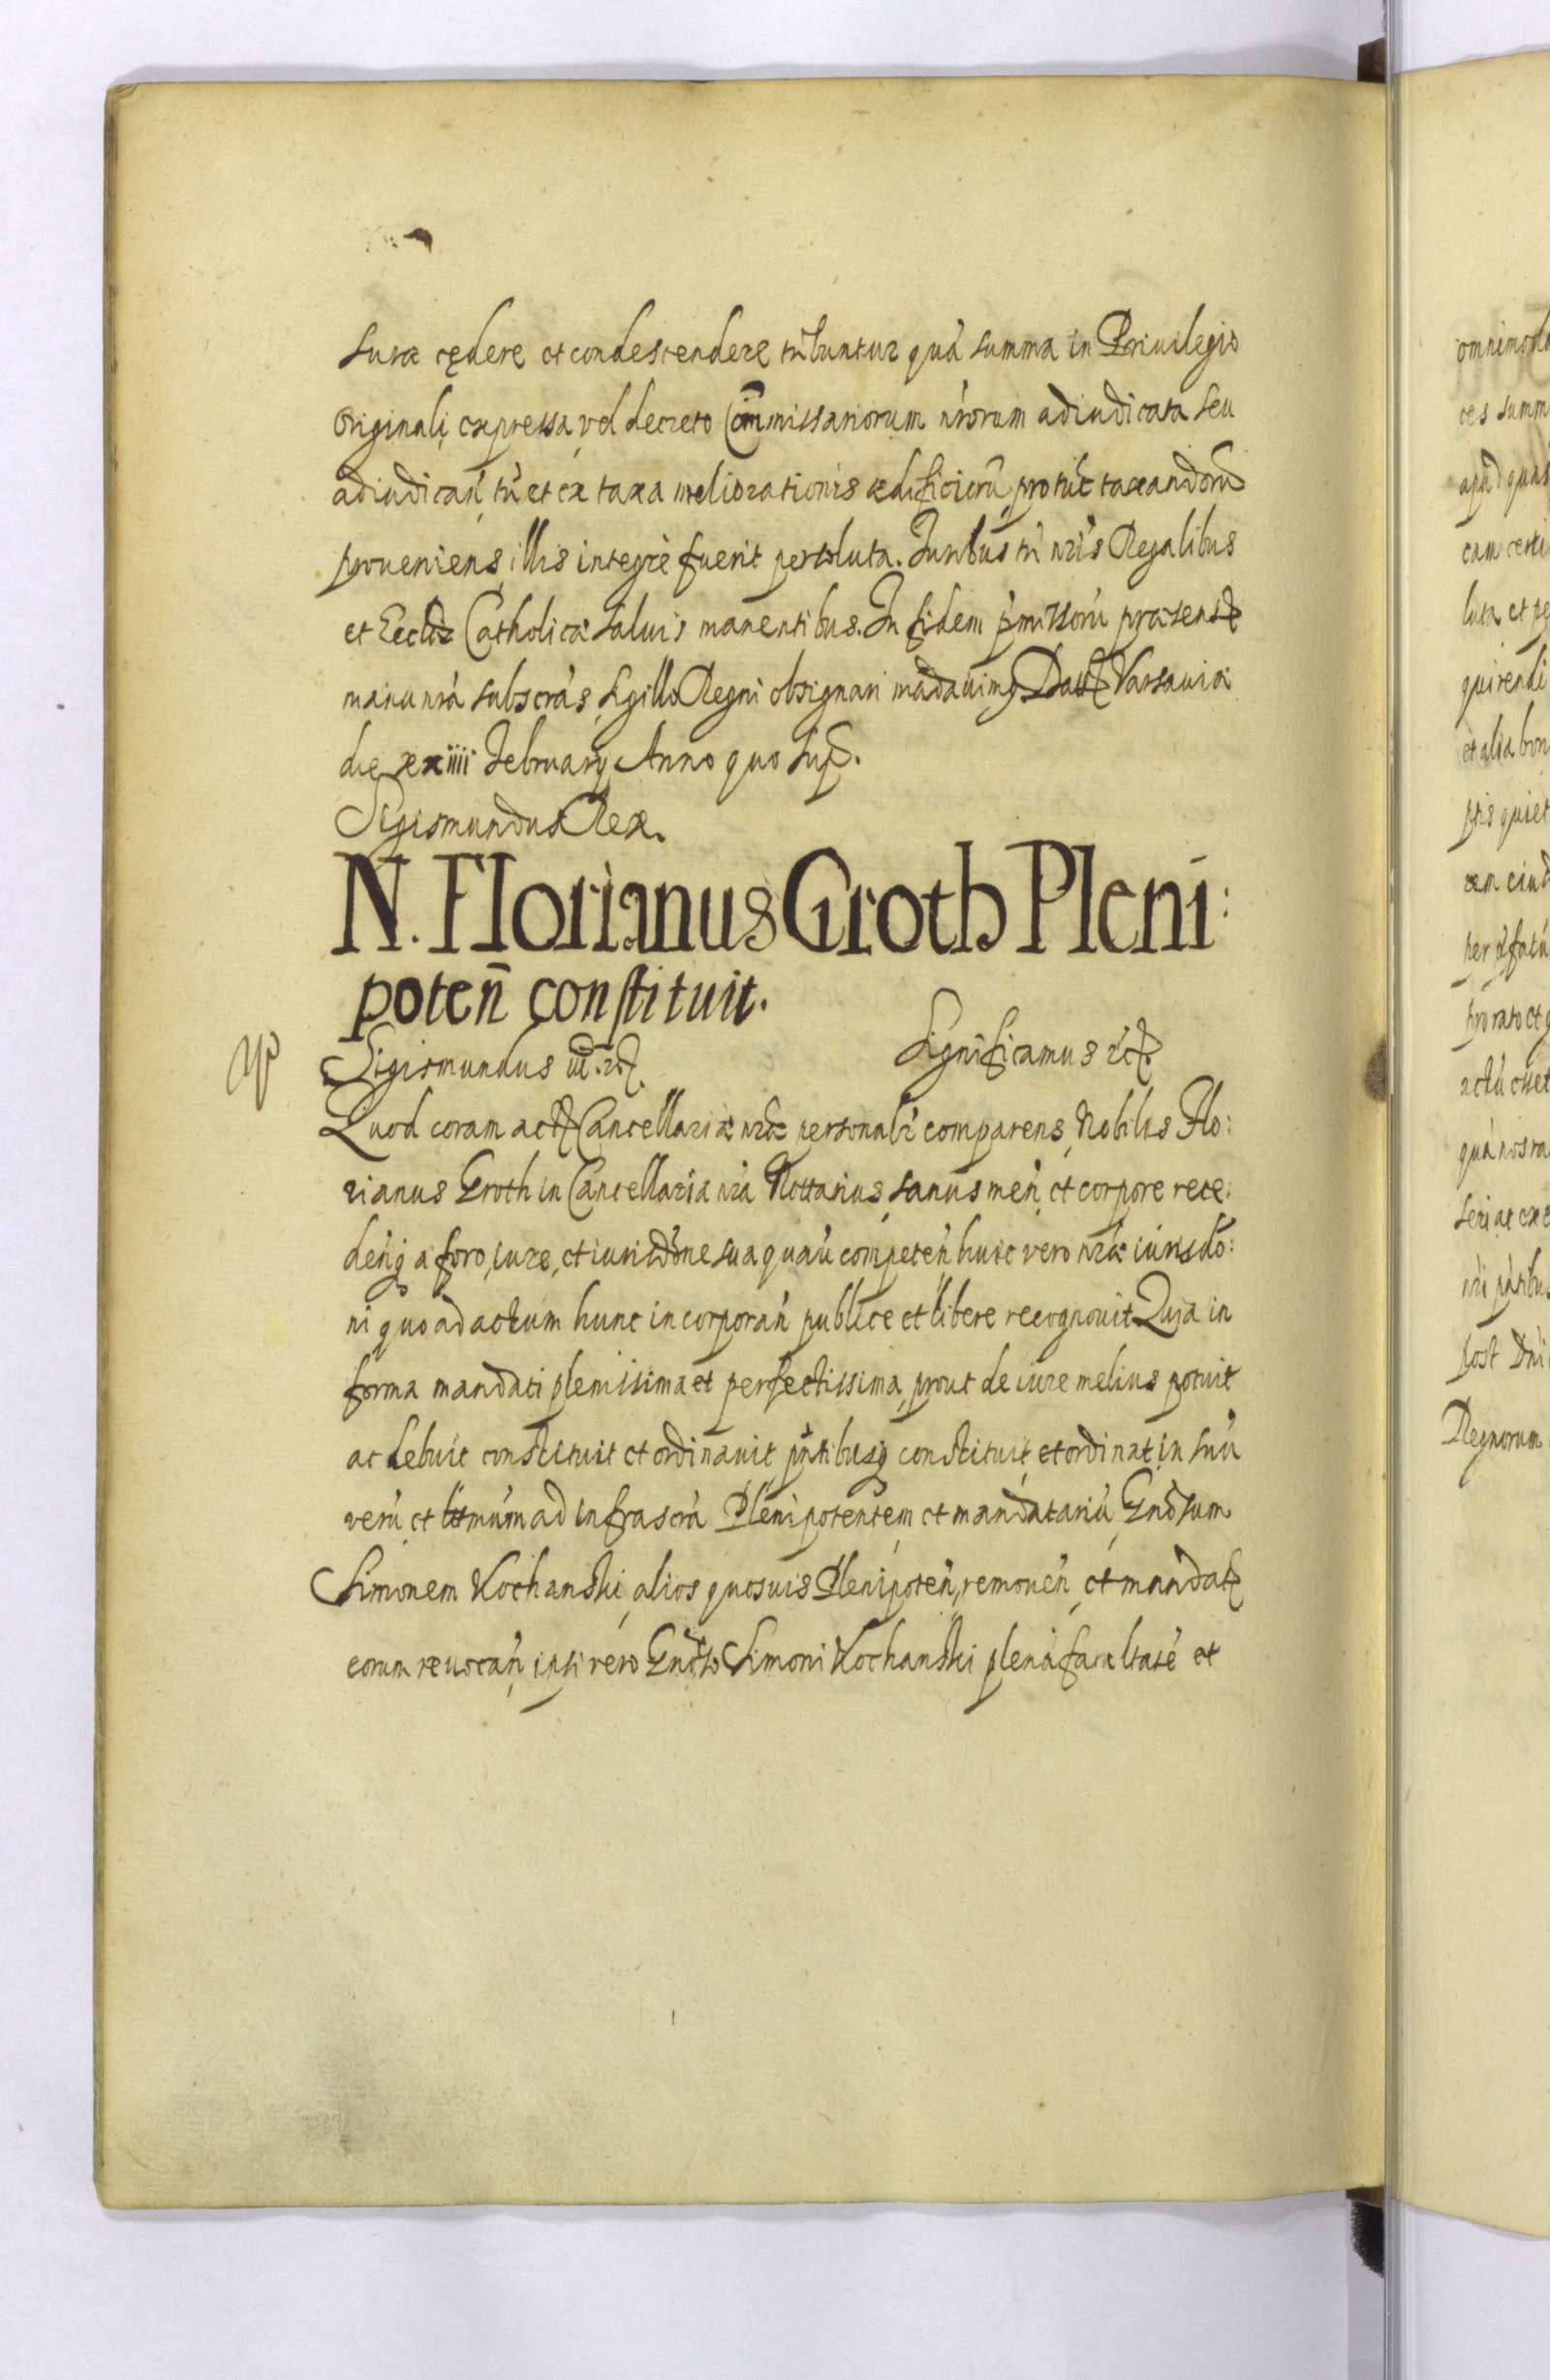 suræ cędere et condescendere tñbuntur quà summa in Priuilegio
originali expressa, vel decreto Commissariorum nrorum adiudicata seu
adiudican, tũ et ex taxa meliorationis ædificiorũ pro tũc taxandorũ
proueniens, illis integrè fuerit persoluta. Iuribus tñ nris Regalibus
et Eccliæ Catholicæ saluis manentibus. In fidem pmissorũ præsentes
manu nrà subscràs, sigillo Regni obsignari mãdauimq Datt Varsauiæ
die xxiiii February Anno quo sup.
Sigismundus Rex.
N. Florianus Groth Pleni:
poteñ constituit.
Sigismundus ut. etc. Significamus etc.
Quod coram actis Cancellariæ nræ personalr comparens, Nobilis Flo:
rianus Groth in Cancellaria nrà Nottarius, sanus meñ et corpore rece:
deñq a foro, iure, et iurisdõne sua quaũ competeñ huic vero nræ iurisdõ:
ni quo ad actum hunc incorporañ publice et libere recognouit Quia in
forma mandati plenissima et perfectissima, prout de iure melius potuit
ac debuit constituit et ordinauit pñtibusq constituit, et ordinat, in suũ
verũ et ltimũm ad infrascrà Plenipotentem et mandatariũ Gnosum
Simonem Kochanski, alios quosuis Plenipoteñ, remoueñ, et mandat
eorum reuocañ, ipsi vero Gnoso Simoni Kochanski plenà facultatẽ et
omnimod
ces summ
apud quas
cam certi
luta et pe
quirendi
et alia bon
ptis quiet
per pfatũ
pro rato et q
actũ
quà nos ra
post Dni
Regnorum